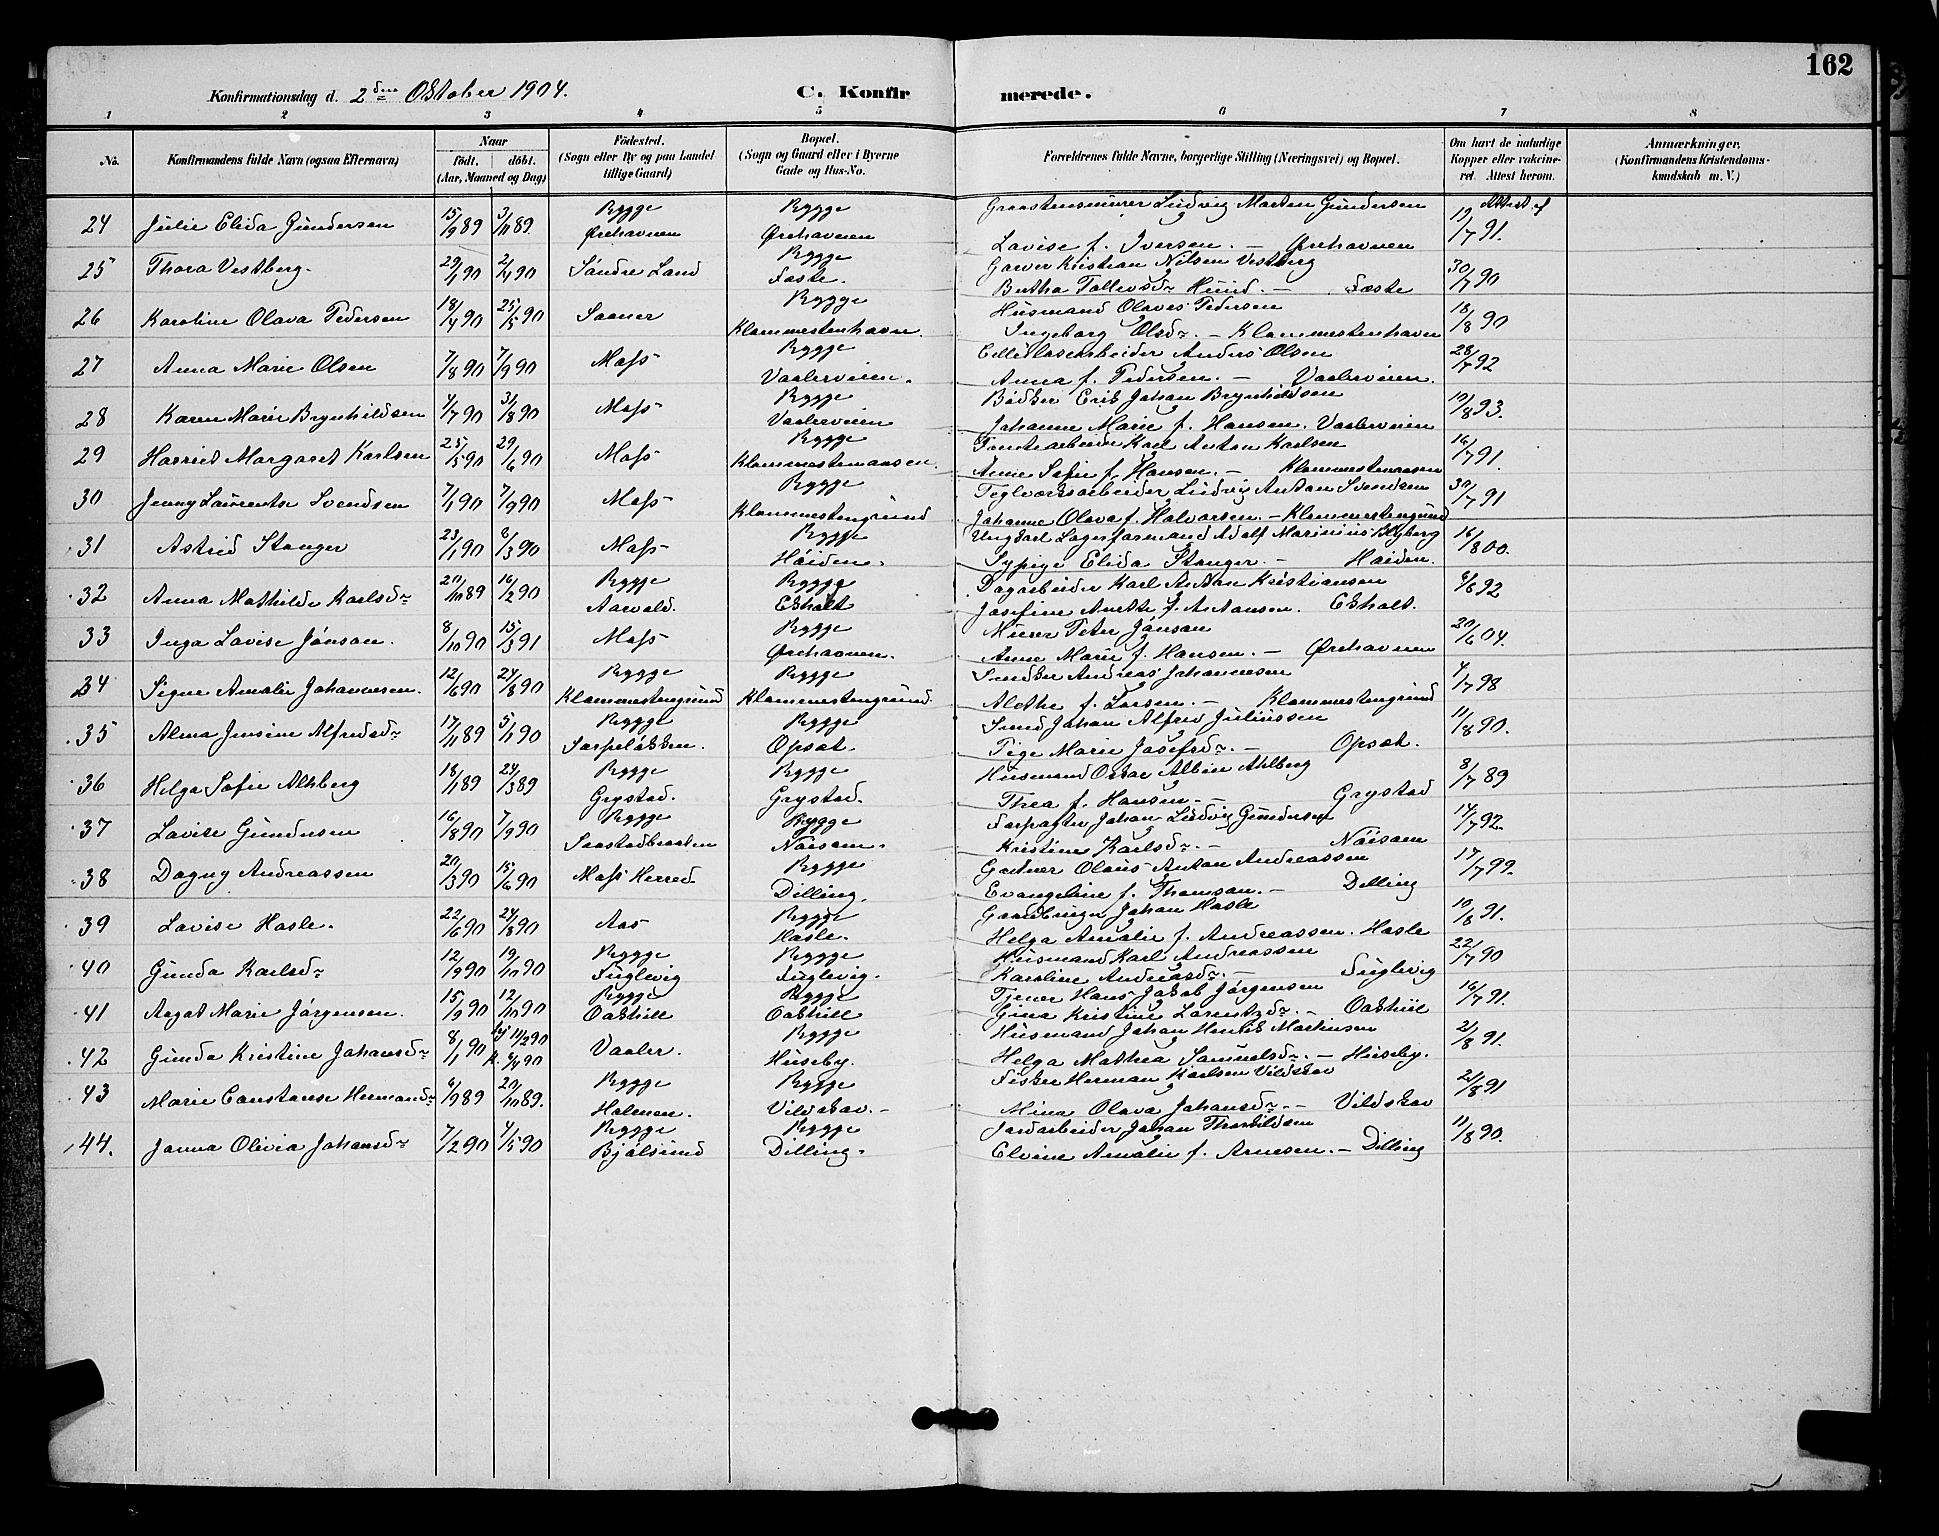 162
Konfirmationsdag d. 2den Oktober 1904. C. Konfirmerede.
1 2 3 4 5 6 7 8
No. Konfirmandens fulde Navn (ogsaa Efternavn) Naar födt. döbt. (Aar, Maaned og Dag) Födested. (Sogn eller By og paa Landet tillige Gaard) Bopæl. (Sogn og Gaard eller i Byerne Gade og Hus-No. Forældrenes fulde Navne, borgerlige Stilling (Næringsvei) og Bopæl. Om havt de naturlige Kopper eller vakcineret. Attest herom. Anmærkninger, (Konfirmandens Kristendomskundskab m. V.)
24 Julie Elida Gundersen 15/9 89 3/11 89. Rygge Ørehavnen Rygge Ørehavnen Graastensmurer Ludvig Marten Gundersen Lovise f. Iversen. — Ørehavnen Attest af 19/7 91.
25 Thora Vestberg. 29/1 90 2/4 90 Söndre Land Rygge Faste. Garver Kristian Nilsen Vestberg Bertha Tollevsdr Hund. — Faste 30/7 90
26 Karoline Olava Pedersen 18/4 90 25/5 90 Saaner Rygge Klommestenhavn. Husmand Olaves Pedersen Ingeborg Olsdr. — Klommestenhavn 18/8 90
27 Anna Marie Olsen 7/8 90 7/9 90 Moss Rygge Vaalerveien. Cellulosearbeider Anders Olsen Anna f. Pedersen. — Vaalerveien. 28/7 92
28 Karen Marie Brynhildsen 4/7 90 31/8 90 Moss Rygge Vaalerveien Bödker Erik Johan Brynhildsen Johanne Marie f. Hansen. Vaalerveien 19/8 93.
29 Harriet Margaret Karlsen 25/5 90 29/6 90 Moss Rygge Klommestenaasen. Tomtearbeider Karl Anton Karlsen Anne Sofie f. Hansen. — Klommestenaasen 16/7 91.
30 Jenny Laurentse Svendsen 7/1 90 7/9 90 Moss Rygge Klommestengrund Teglverksarbeider Ludvig Anton Svendsen Johanne Olava f. Halvorsen. — Klommestengrund 30/7 91
31 Astrid Stanger 23/1 90 8/3 90 Moss Rygge Höiden. Ungkarl Lagerformand Adolf Marinius Blyberg Sypige Elida Stanger. — Höiden. 16/8 00.
32 Anna Mathilde Karlsdr 20/11 89 16/2 90 Rygge Aarvold. Rygge Ekholt Dagarbeider Karl Anton Kristiansen Josefine Anette f. Antonsen. Ekholt. 6/8 92
33 Inga Lovise Jönson. 8/10 90 15/3 91 Moss Rygge Ørehavnen. Murer Peter Jönson Anne Marie f. Hansen. — Ørehavnen 20/6 04.
34 Signe Amalie Johannesen. 12/6 90 24/8 90 Rygge Klommestengrund Rygge Klommestengrund. Andreas Johannesen Alethe f. Larsen. — Klommestengrund 4/7 98
35 Alma Jensine Alfredsdr 17/11 89 5/1 90 Rygge Sarpelökken. Rygge Opsat. Smed Johan Alfred Juliussen Pige Marie Josefsdr. — Opsat. 11/8 90.
36 Helga Sofie Ahlberg 18/1 89 24/3 89 Rygge Grystad. Rygge Grystad. Husmand Oskar Albin Ahlberg Thea f. Hansen. — Grystad 3/7 89
37 Lovise Gundersen 16/8 90 7/9 90 Rygge Saastadbraaten Rygge Nöisom. Forpagter Johan Ludvig Gundersen Kristine Karlsdr. — Nöisom 14/7 92.
38 Dagny Andreassen 20/3 90 15/6 90 Moss Herred. Rygge Dilling. Gartner Olaus Anton Andreassen Evangeline f. Thomson. — Dilling 17/7 99.
39 Lovise Hasle. 22/6 90 24/8 90 Aas Rygge Hasle. Gaardbruger Johan Hasle Helga Amalie f. Andreassen. Hasle 19/8 91.
40 Gunda Karlsdr 12/9 90 19/10 90 Rygge Fuglevig Rygge Fuglevig. Husmand Karl Andreassen Karoline Andreasdr. — Fuglevig 22/7 90
41 Aagot Marie Jörgensen. 15/9 90 12/10 90 Rygge Oakhill Rygge Oakhill Tjener Hans Jakob Jörgensen Gina Kristine Lorentzdr. — Oakhill 16/7 91.
42 Gunda Kristine Johansdr 8/1 90 hj 11/2 90 k. 6/4 90 Vaaler. Rygge Huseby. Husmand Johan Henrik Martinsen Helga Mathea Samuelsdr. — Huseby. 21/8 91.
43 Marie Constanse Hermandr 6/9 89 20/10 89. Rygge Holmen. Rygge Vildskov. — Fisker Herman Karlsen Vildskov Mina Olava Johansdr. — Vildskov 21/8 91
44. Janna Olivia Johansdr 7/2 90 4/5 90 Rygge Bjölsund Rygge Dilling. Jordarbeider Johan Thorkildsen Elvine Amalie f. Arnesen. — Dilling 11/8 90.